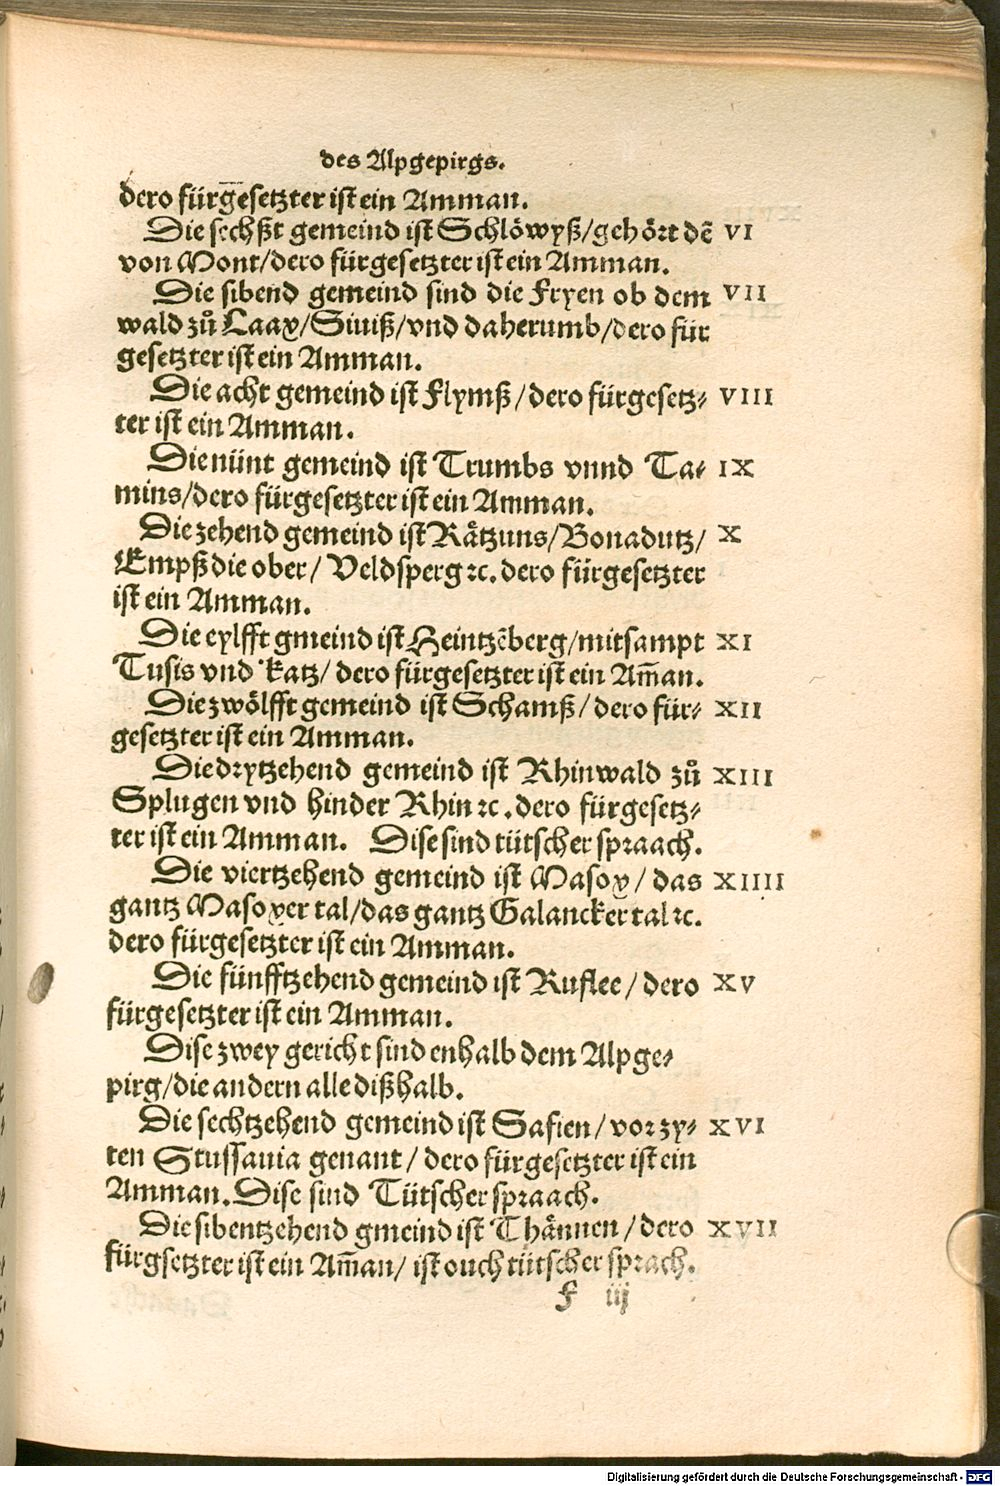 des Alpgepirgs.
dero fürgesetzter ist ein Amman.
Die sechßt gemeind ist Schlöwyß/gehört dē VI
von Mont/dero fürgesetzter ist ein Amman.
Die sibend gemeind sind die Fryen ob dem VII
wald zů Laax/Siuiß/vnd daherumb/dero für
gesetzter ist ein Amman.
Die acht gemeind ist Flymß/dero fürgesetz⸗ VIII
ter ist ein Amman.
Die nünt gemeind ist Trumbs vnnd Ta⸗ IX
mins/dero fürgesetzter ist ein Amman.
Die zehend gemeind ist Rätzuns/Bonadutz/ X
Empß die ober/Veldsperg ꝛc. dero fürgesetzter
ist ein Amman.
Die eylfft gmeind ist Heintzēberg/mitsampt XI
Tusis vnd Katz/dero fürgesetzter ist ein Am̄an.
Die zwölfft gemeind ist Schamß/dero für⸗ XII
gesetzter ist ein Amman.
Die drytzehend gemeind ist Rhinwald zů XIII
Splugen vnd hinder Rhin ꝛc. dero fürgesetz⸗
ter ist ein Amman. Dise sind tütscher spraach.
Die viertzehend gemeind ist Masox/das XIIII
gantz Masoxer tal/das gantz Galancker tal ꝛc.
dero fürgesetzter ist ein Amman.
Die fünfftzehend gemeind ist Ruflee/dero XV
fürgesetzter ist ein Amman.
Dise zwey gericht sind enhalb dem Alpge⸗
pirg/die andern alle dißhalb.
Die sechtzehend gemeind ist Safien/vor zy⸗ XVI
ten Stussauia genant/dero fürgesetzter ist ein
Amman. Dise sind Tütscher spraach.
Die sibentzehend gmeind ist Thännen/dero XVII
fürgsetzter ist ein Am̄an/ist ouch tütscher sprach.
F iij
Digitalisierung gefördert durch die Deutsche Forschungsgemeinschaft - DFG